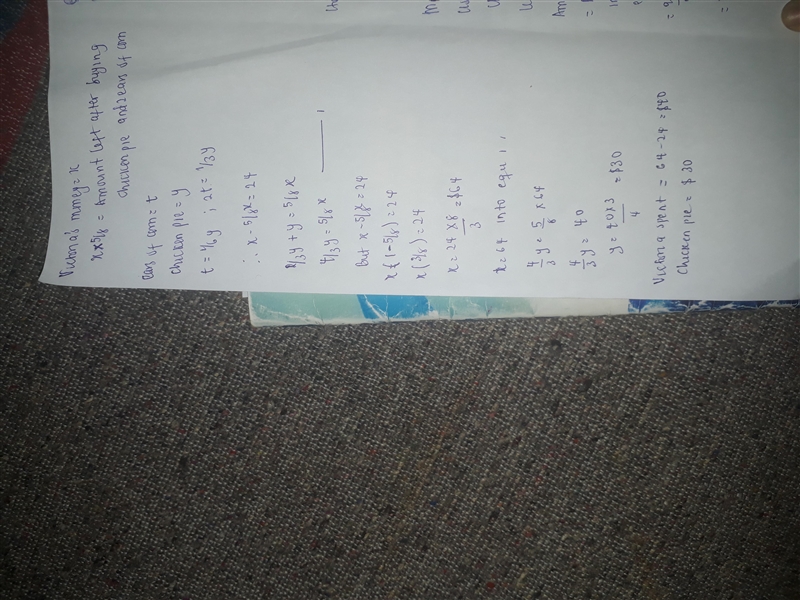 Victoria's money = x
x x 5/8 = Amount left after buying
chicken pie and 2 cans of corn
cans of corn = t
chicken pie = y
t = 1/6 y ; 2t = 1/3 y
∴ x - 5/8 x = 24
1/3 y + y = 5/8 x
4/3 y = 5/8 x ——— 1
but x - 5/8 x = 24
x (1 - 5/8) = 24
x (3/8) = 24
x = 24 x 8 / 3 = $64
x = 64 into equ 1,
4/3 y = 5/8 x 64
4/3 y = 40
y = 40 x 3 / 4 = $30
Victoria spent = 64 - 24 = $40
Chicken pie = $30